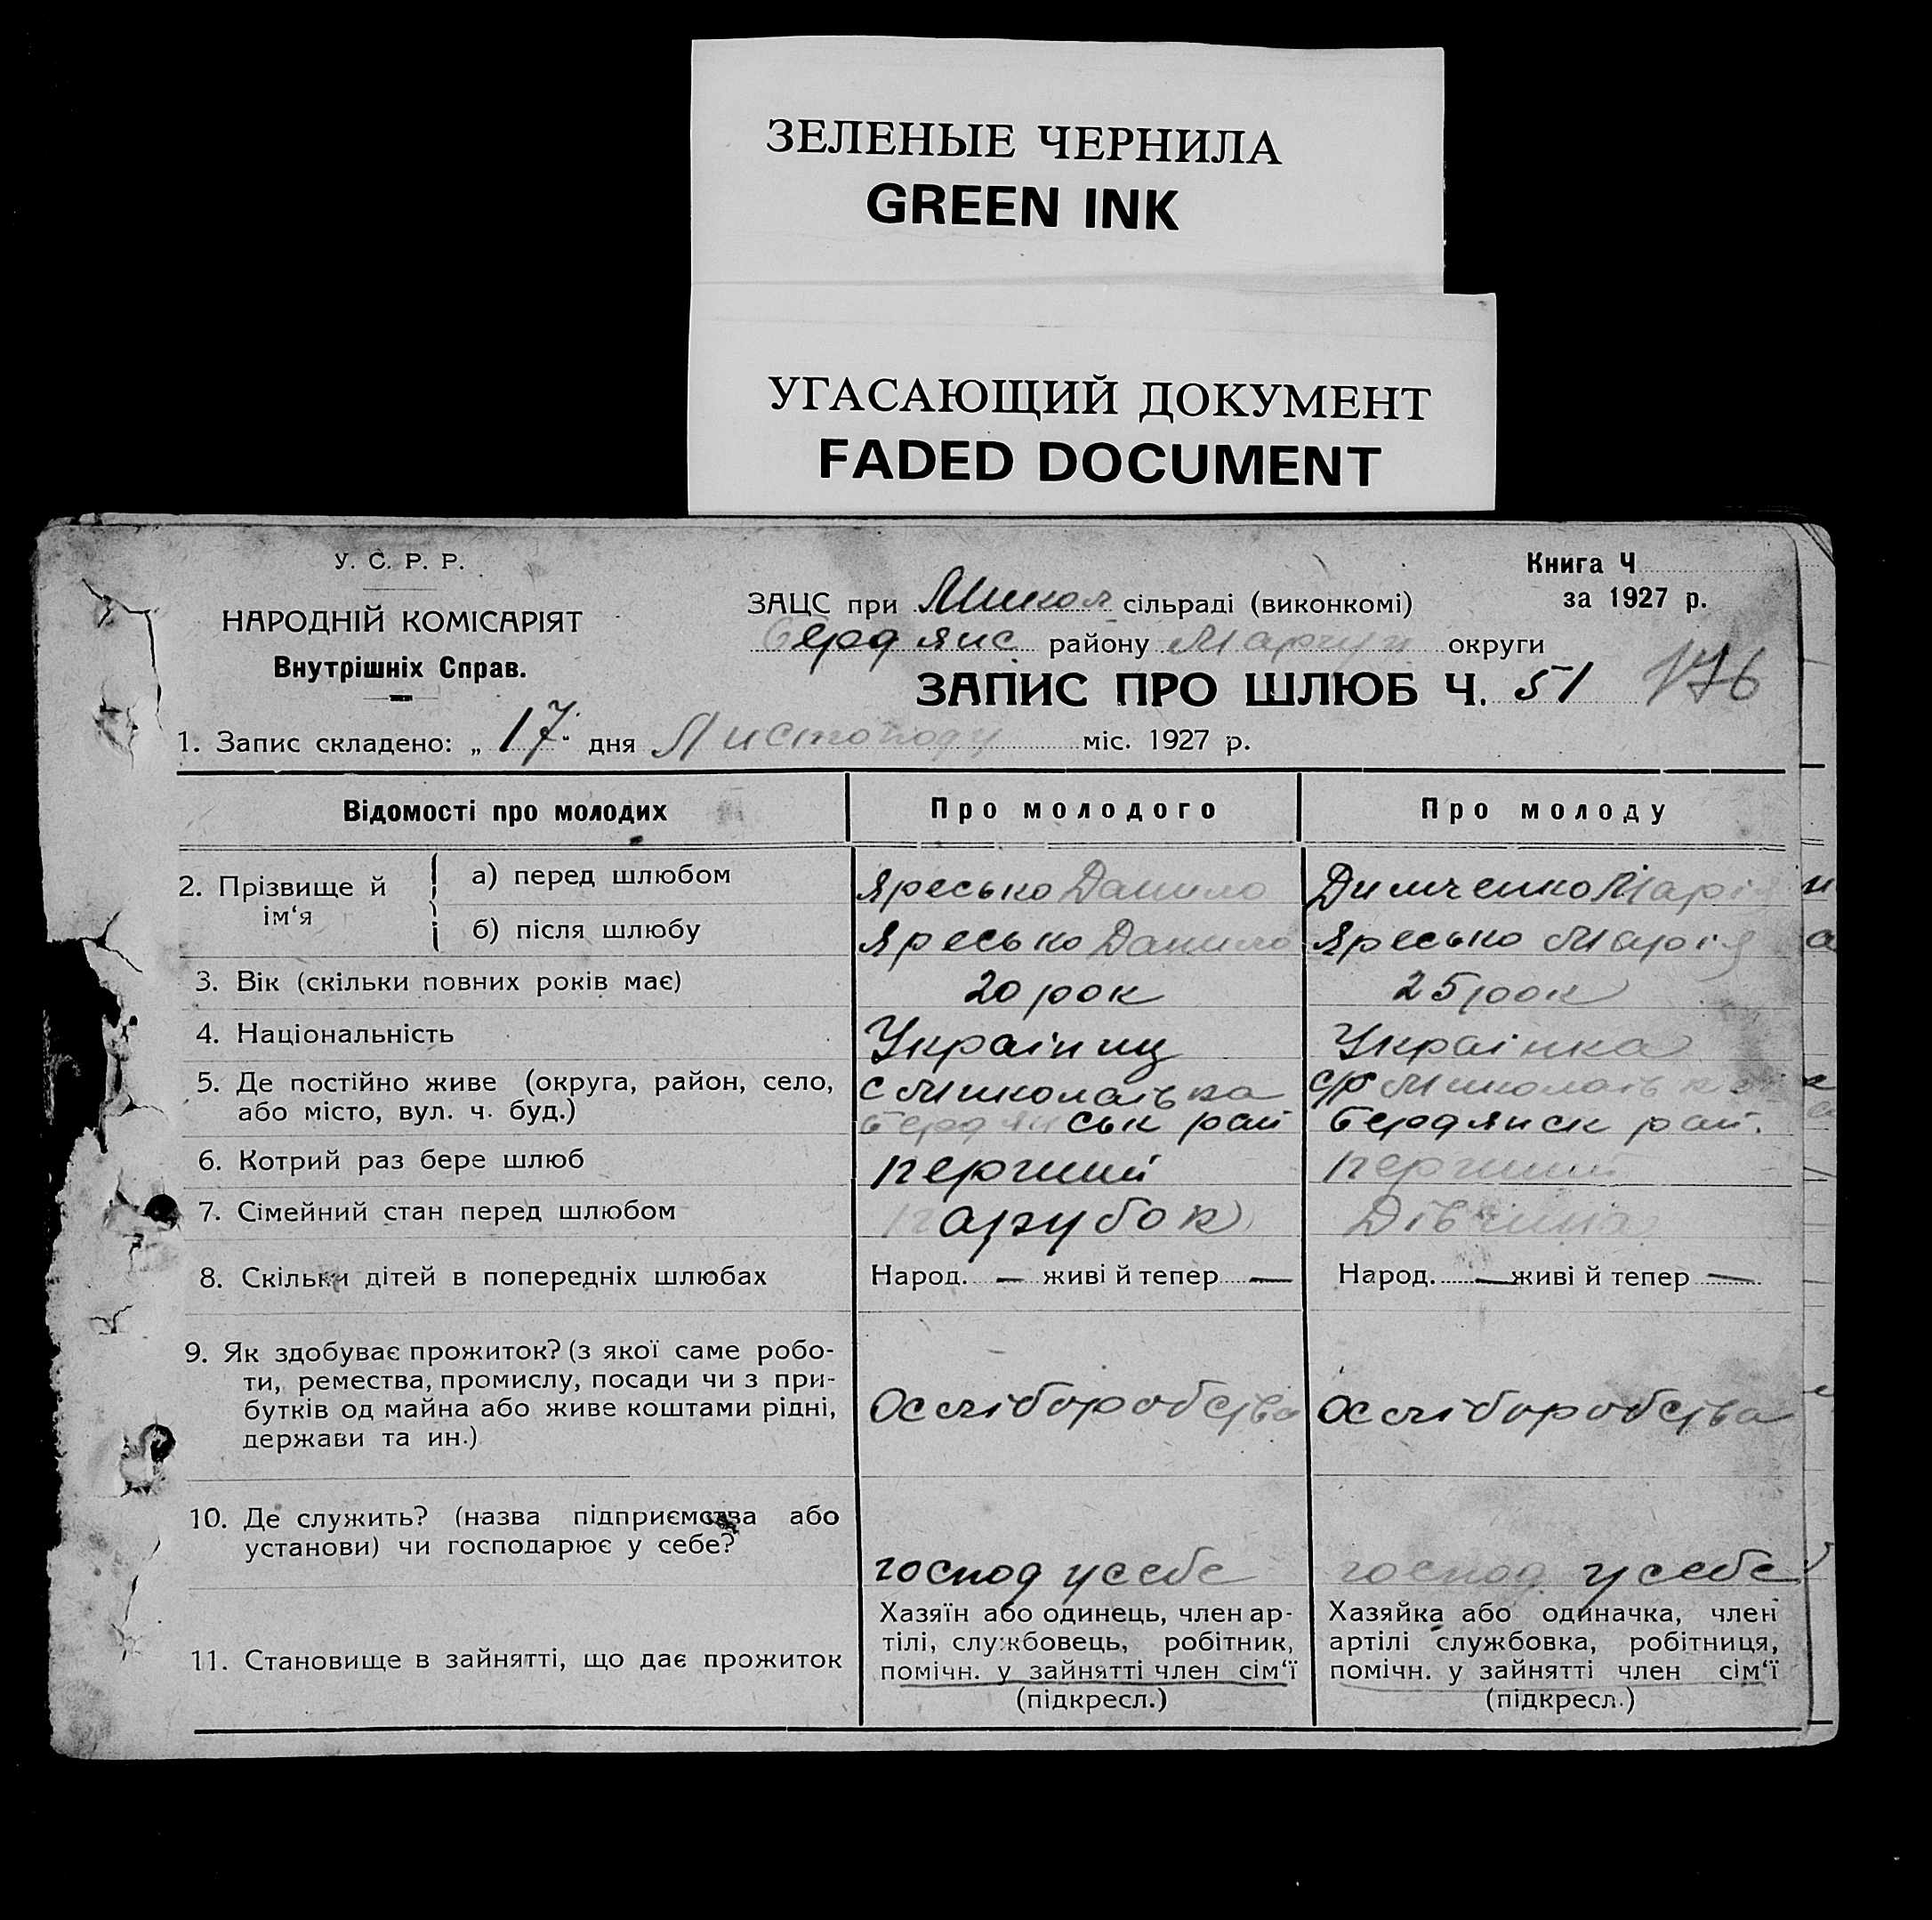 ЗЕЛЕНЫЕ ЧЕРНИЛА
GREEN INK
УГАСАЮЩИЙ ДОКУМЕНТ
FADED DOCUMENT
У. С. Р. Р.
НАРОДНІЙ КОМІСАРІЯТ
Внутрішніх Справ.
Книга Ч
за 1927 р.
ЗАЦС при Микол сільраді (виконкомі)
Бердянс району Маріуп округи
ЗАПИС ПРО ШЛЮБ Ч. 51 176
1. Запис складено: „ 17 " дня Листопаду міс. 1927 р.
Відомості про молодих Про молодого Про молоду
2. Прізвище й ім‘я
а) перед шлюбом Яресько Данило Димченко Марія
б) після шлюбу Яресько Данило Яресько Марія
3. Вік (скільки повних років має) 20 рок 25 рок
4. Національність Українец Українка
5. Де постійно живе (округа, район, село, с Миколаівка с/р Миколаівка
або місто, вул. ч. буд.) Бердянськ рай Бердянск рай.
6. Котрий раз бере шлюб перший перший
7. Сімейний стан перед шлюбом парубок Дівчина
8. Скільки дітей в попередніх шлюбах Народ. — живі й тепер — Народ. — живі й тепер —
9. Як здобуває прожиток? (з якої саме робо-
ти, ремества, промислу, посади чи з при-
бутків од майна або живе коштами рідні,
держави та ин.)
10. Де служить? (назва підприємства або
установи) чи господарює у себе? господ у себе господ у себе
11. Становище в зайнятті, що дає прожиток
Хазяїн або одинець, член ар-
тілі, службовець, робітник,
помічн. у зайнятті член сім‘ї
(підкресл.)
Хазяйка або одиначка, член
артілі службовка, робітниця,
помічн. у зайнятті член сім‘ї
(підкресл.)